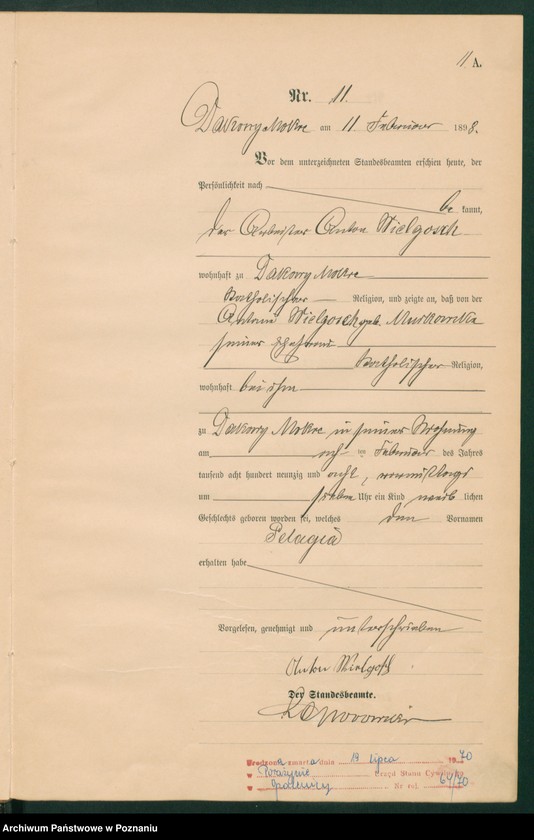 11 A.
Nr. 11.
Dakowy Mokre am 11 Februar 1898.
Vor dem unterzeichneten Standesbeamten erschien heute, der
Persönlichkeit nach
be kannt,
der Arbeiter Anton Wielgosch
wohnhaft zu Dakowy Mokre
katholischer Religion, und zeigte an, daß von der
Antonie Wielgosch geb.
seiner Ehefrau
katholischer Religion,
wohnhaft bei ihm
zu Dakowy Mokre in seiner Wohnung
am ten Februar des Jahres
tausend acht hundert neunzig und acht, vormittags
um sieben Uhr ein Kind weib lichen
Geschlechts geboren worden sei, welches den Vornamen
Pelagia
erhalten habe
Vorgelesen, genehmigt und unterschrieben
Anton Wielgosch
Der Standesbeamte.
zmarła dnia 19 lipca 1970
w Urząd Stanu Cywilnego
w Opalenicy Nr rej. 64/70
Archiwum Państwowe w Poznaniu